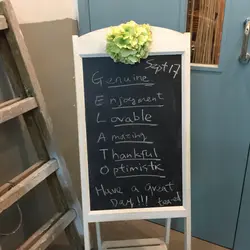 Sept 17
Genuine
Enjoyment
Lovable
Amazing
Thankful
Optimistic
Have a great
Day !!!